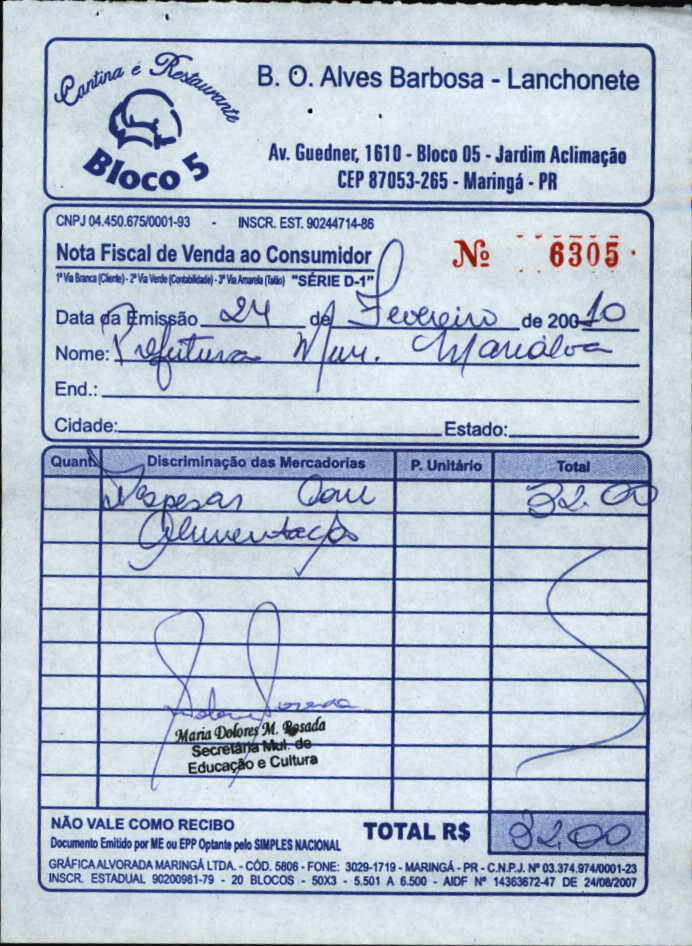 Cantina e Restaurante
Bloco 5
B. O. Alves Barbosa - Lanchonete
Av. Guedner, 1610 - Bloco 05 - Jardim Aclimação
CEP 87053-265 - Maringá - PR
CNPJ 04.450.675/0001-93 - INSCR. EST. 90244714-86
Nota Fiscal de Venda ao Consumidor
Nº 6305
1ª Via Branca (Cliente) - 2ª Via Verde (Contabilidade) - 3ª Via Amarela (Talão) "SÉRIE D-1"
Data da Emissão 24 de Fevereiro de 200 10
Nome: Prefeitura Mun. Marialva
End.:
Cidade: Estado:
Quant. Discriminação das Mercadorias P. Unitário Total
Despesas Com 32.00
Alimentação
Maria Dolores M. Rosada
Secretária Mul. de
Educação e Cultura
NÃO VALE COMO RECIBO
Documento Emitido por ME ou EPP Optante pelo SIMPLES NACIONAL
TOTAL R$ 32.00
GRÁFICA ALVORADA MARINGÁ LTDA. - CÓD. 5806 - FONE: 3029-1719 - MARINGÁ - PR - C.N.P.J. Nº 03.374.974/0001-23
INSCR. ESTADUAL 90200981-79 - 20 BLOCOS - 50X3 - 5.501 A 6.500 - AIDF Nº 14363672-47 DE 24/08/2007